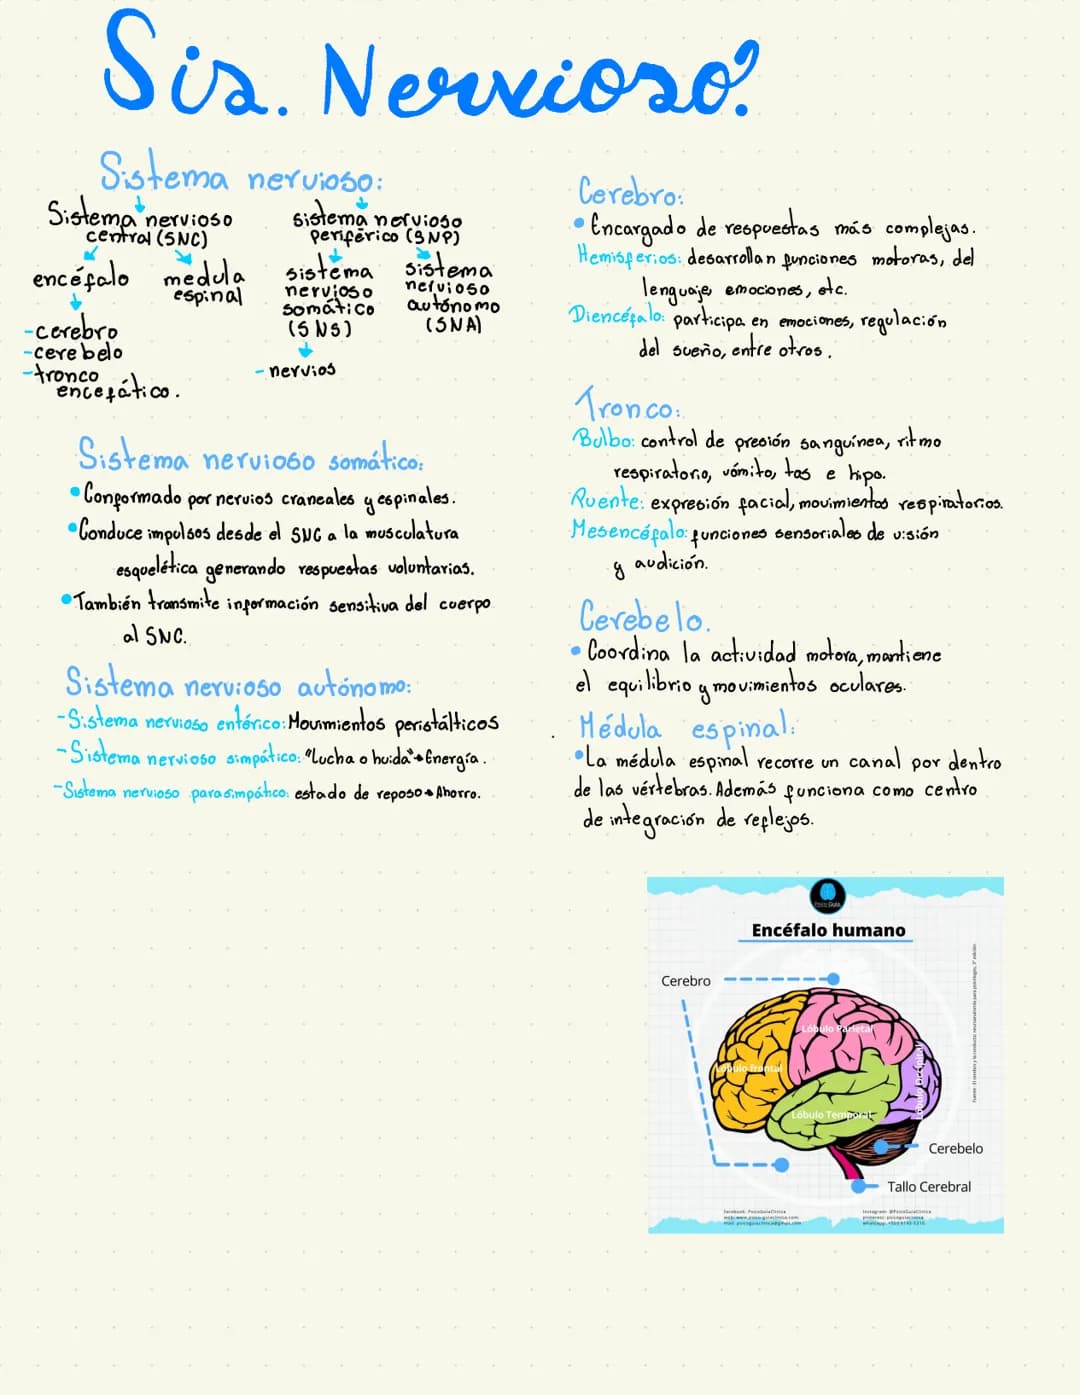 Sis. Nervioso.
Sistema nervioso:
Sistema nervioso
central (SNC)
encéfalo
medula
espinal
-cerebro
-cerebelo
-tronco
encefático.
sistema nervioso
periférico (SNP)
sistema
nervioso
somático
(SNS)
- nervios
sistema
nervioso
autónomo
(SNA)
Sistema nervioso somático:
• Conformado por nervios craneales y espinales.
• Conduce impulsos desde el SNC a la musculatura
esquelética generando respuestas voluntarias.
• También transmite información sensitiva del cuerpo
al SNC.
Sistema nervioso autónomo:
- Sistema nervioso entérico: Movimientos peristálticos
- Sistema nervioso simpático: "Lucha o huida"→Energía.
- Sistema nervioso parasimpático: estado de reposo→Ahorro.
Cerebro:
• Encargado de respuestas más complejas.
Hemisferios: desarrollan funciones motoras, del
lenguaje, emociones, etc.
Diencéfalo: participa en emociones, regulación
del sueño, entre otros.
Tronco:
Bulbo: control de presión sanguínea, ritmo
respiratorio, vómito, tos e hipo.
Puente: expresión facial, movimientos respiratorios.
Mesencéfalo: funciones sensoriales de visión
y audición.
Cerebelo.
• Coordina la actividad motora, mantiene
el equilibrio y movimientos oculares.
Médula espinal:
• La médula espinal recorre un canal por dentro
de las vértebras. Además funciona como centro
de integración de reflejos.
Psico Guía
Encéfalo humano
Cerebro
Lóbulo Parietal
Lóbulo frontal
Lóbulo Temporal
Lóbulo Occipital
Cerebelo
Tallo Cerebral
facebook: PsicoGuiaClinica